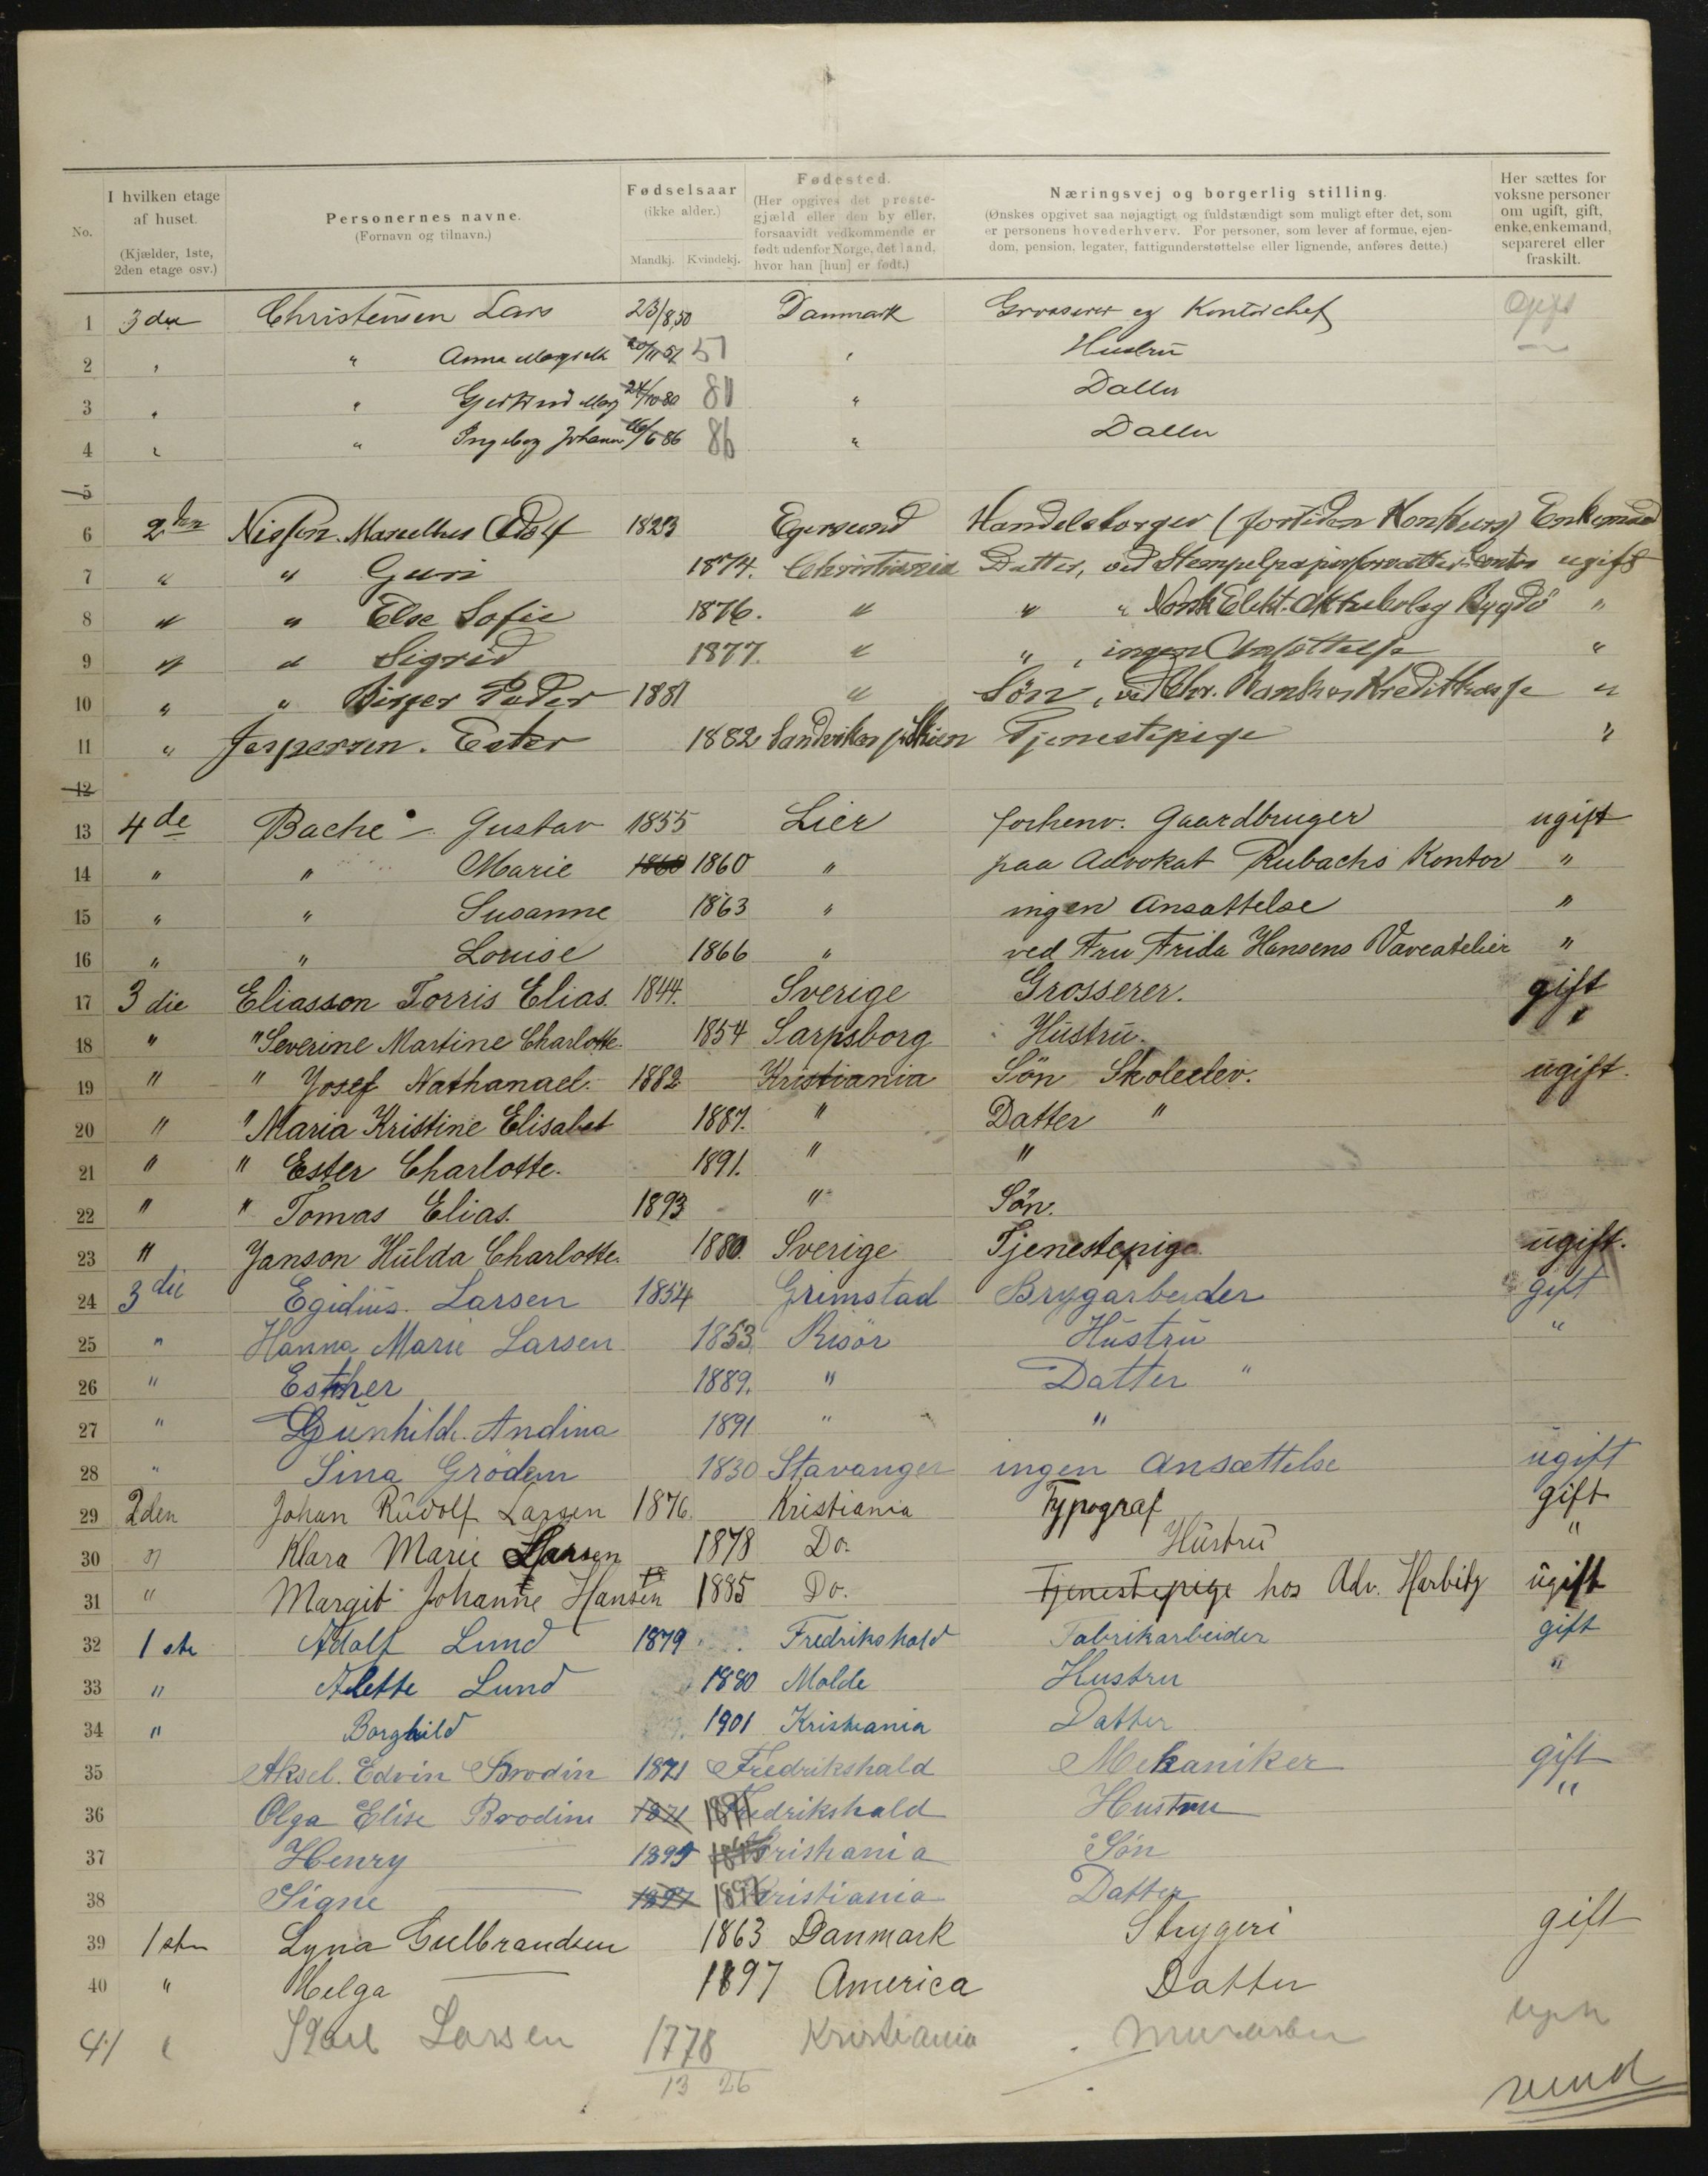 No.
I hvilken etage af huset.
(Kjælder, 1ste, 2den etage osv.)
Personernes navne.
(Fornavn og tilnavn.)
Fødselsaar
(ikke alder.)
Mandkj. Kvindekj.
Fødested.
(Her opgives det preste-
gjæld eller den by eller,
forsaavidt vedkommende er
født udenfor Norge, det land,
hvor han [hun] er født.)
Næringsvej og borgerlig stilling.
(Ønskes opgivet saa nøjagtigt og fuldstændigt som muligt efter det, som
er personens hovederhverv. For personer, som lever af formue, ejen-
dom, pension, legater, fattigunderstøttelse eller lignende, anføres dette.)
Her sættes for
voksne personer
om ugift, gift,
enke, enkemand,
separeret eller
fraskilt.
1 3die Christensen Lars 23/8 50 Danmark Grosserer og Kontorchef
2 " " Anna 51 " Hustru
3 " " 24/10 80 80 " Datter
4 " " Ingeborg Johanne 16/6 86 86 " Datter
5
6 2den Nissen Marselius Adolf 1823 Egersund Handelsborger (fortiden Konkurs) Enkemand
7 " " Guri 1874. Christiania Datter, ved Stempelpapirforvalter Kontor ugift
8 " " Else Sofie 1876. " " " Norsk Elekt. Aktiebolag Bygdö "
9 " " Sigrid 1877. " " , ingen Ansættelse "
10 " " Birger Peder 1881 " Sön, ved Chr. Bank og Kreditkasse "
11 " Jespersen. Ester 1882 Sandviken p Skien Tjenestepige "
12
13 4de Bache Gustav 1855 Lier forhenv. Gaardbruger ugift
14 " " Marie 1860 1860 " paa Advokat Rubachs Kontor "
15 " " Susanne 1863 " ingen Ansattelse "
16 " " Louise 1866 " ved Fru Frida Hansens Væveatelier "
17 3die Eliasson Torris Elias. 1844. Sverige Grosserer. gift
18 " " Severine Martine Charlotte. 1854 Sarpsborg Hustru. "
19 " " Josef Nathanael. 1882 Kristiania Sön Skoleelev. ugift.
20 " " Maria Kristine Elisabet 1887. " Datter "
21 " " Ester Charlotte. 1891. " "
22 " " Tomas Elias. 1893 " Sön.
23 " Janson Hulda Charlotte. 1880. Sverige Tjenestepige ugift.
24 3die Egidius. Larsen 1854 Grimstad Brygarbeider gift
25 " Hanna Marie Larsen 1853. Risör Hustru "
26 " Esther 1889. " Datter "
27 " Gunhild. Andina 1891 " "
28 " Sina Grödem 1830 Stavanger ingen Ansættelse ugift
29 2den Johan Rudolf Larsen 1876. Kristiania Typograf gift
30 " Klara Marie Larsen 1878 Do. Hustru "
31 " Margit Johanne Hansen 1885 Do. Tjenestepige hos Adv. Harbitz ugift
32 1ste Adolf Lund 1879 Fredrikshald Fabrikarbeider gift
33 " Alette Lund 1880 Molde Hustru "
34 " Borghild 1901 Kristiania Datter
35 Aksel. Edvin Brodin 1871 Fredrikshald Mekaniker gift
36 Olga Elise Brodin 1871 1871 Fredrikshald Hustru "
37 Henry 1895 Kristiania Sön
38 Signe 1897 1897 Kristiania Datter
39 1ste Lyna Gulbrandsen 1863 Danmark Strygeri gift
40 " Helga 1897 America Datter
41 " Karl Larsen 1778 Kristiania Murarbei ugift
13 26
vend